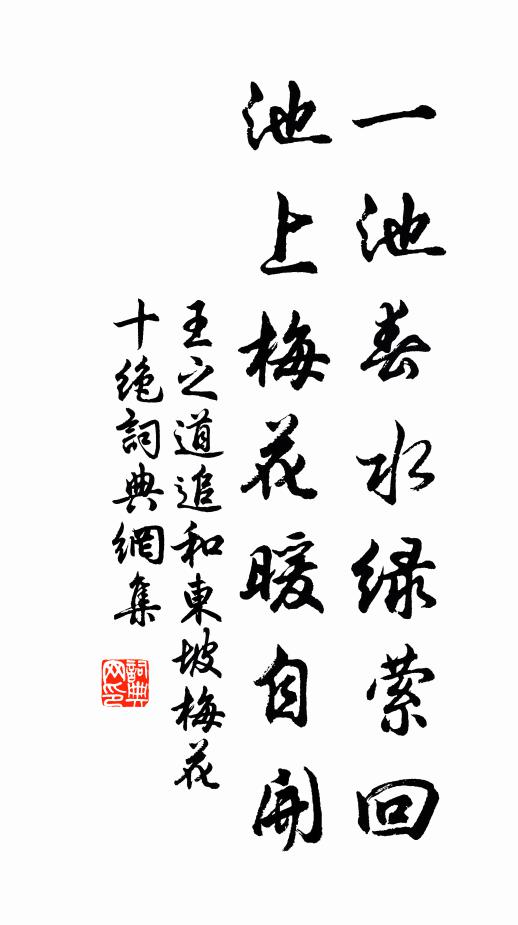 一池春水绿萦回
池上梅花暖自開
王之道追和東坡梅花
十絶詞典網集
詞典网印